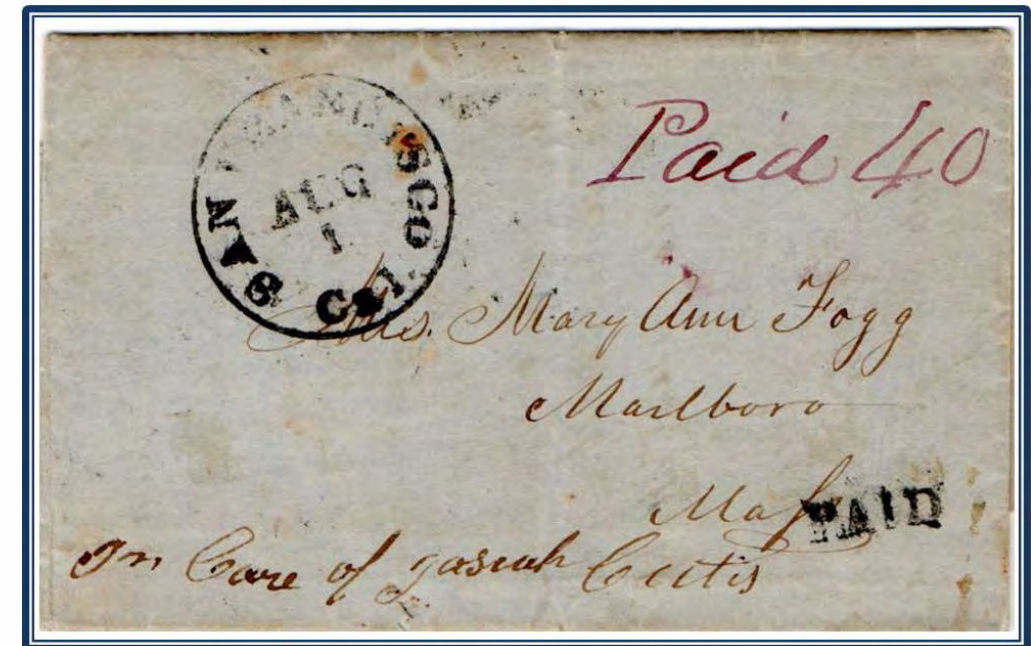 SAN FRANCISCO Cal.
AUG
1
Paid 40
Mrs. Mary Ann Fogg
Marlboro
Mass
PAID
In Care of Josiah Cutis